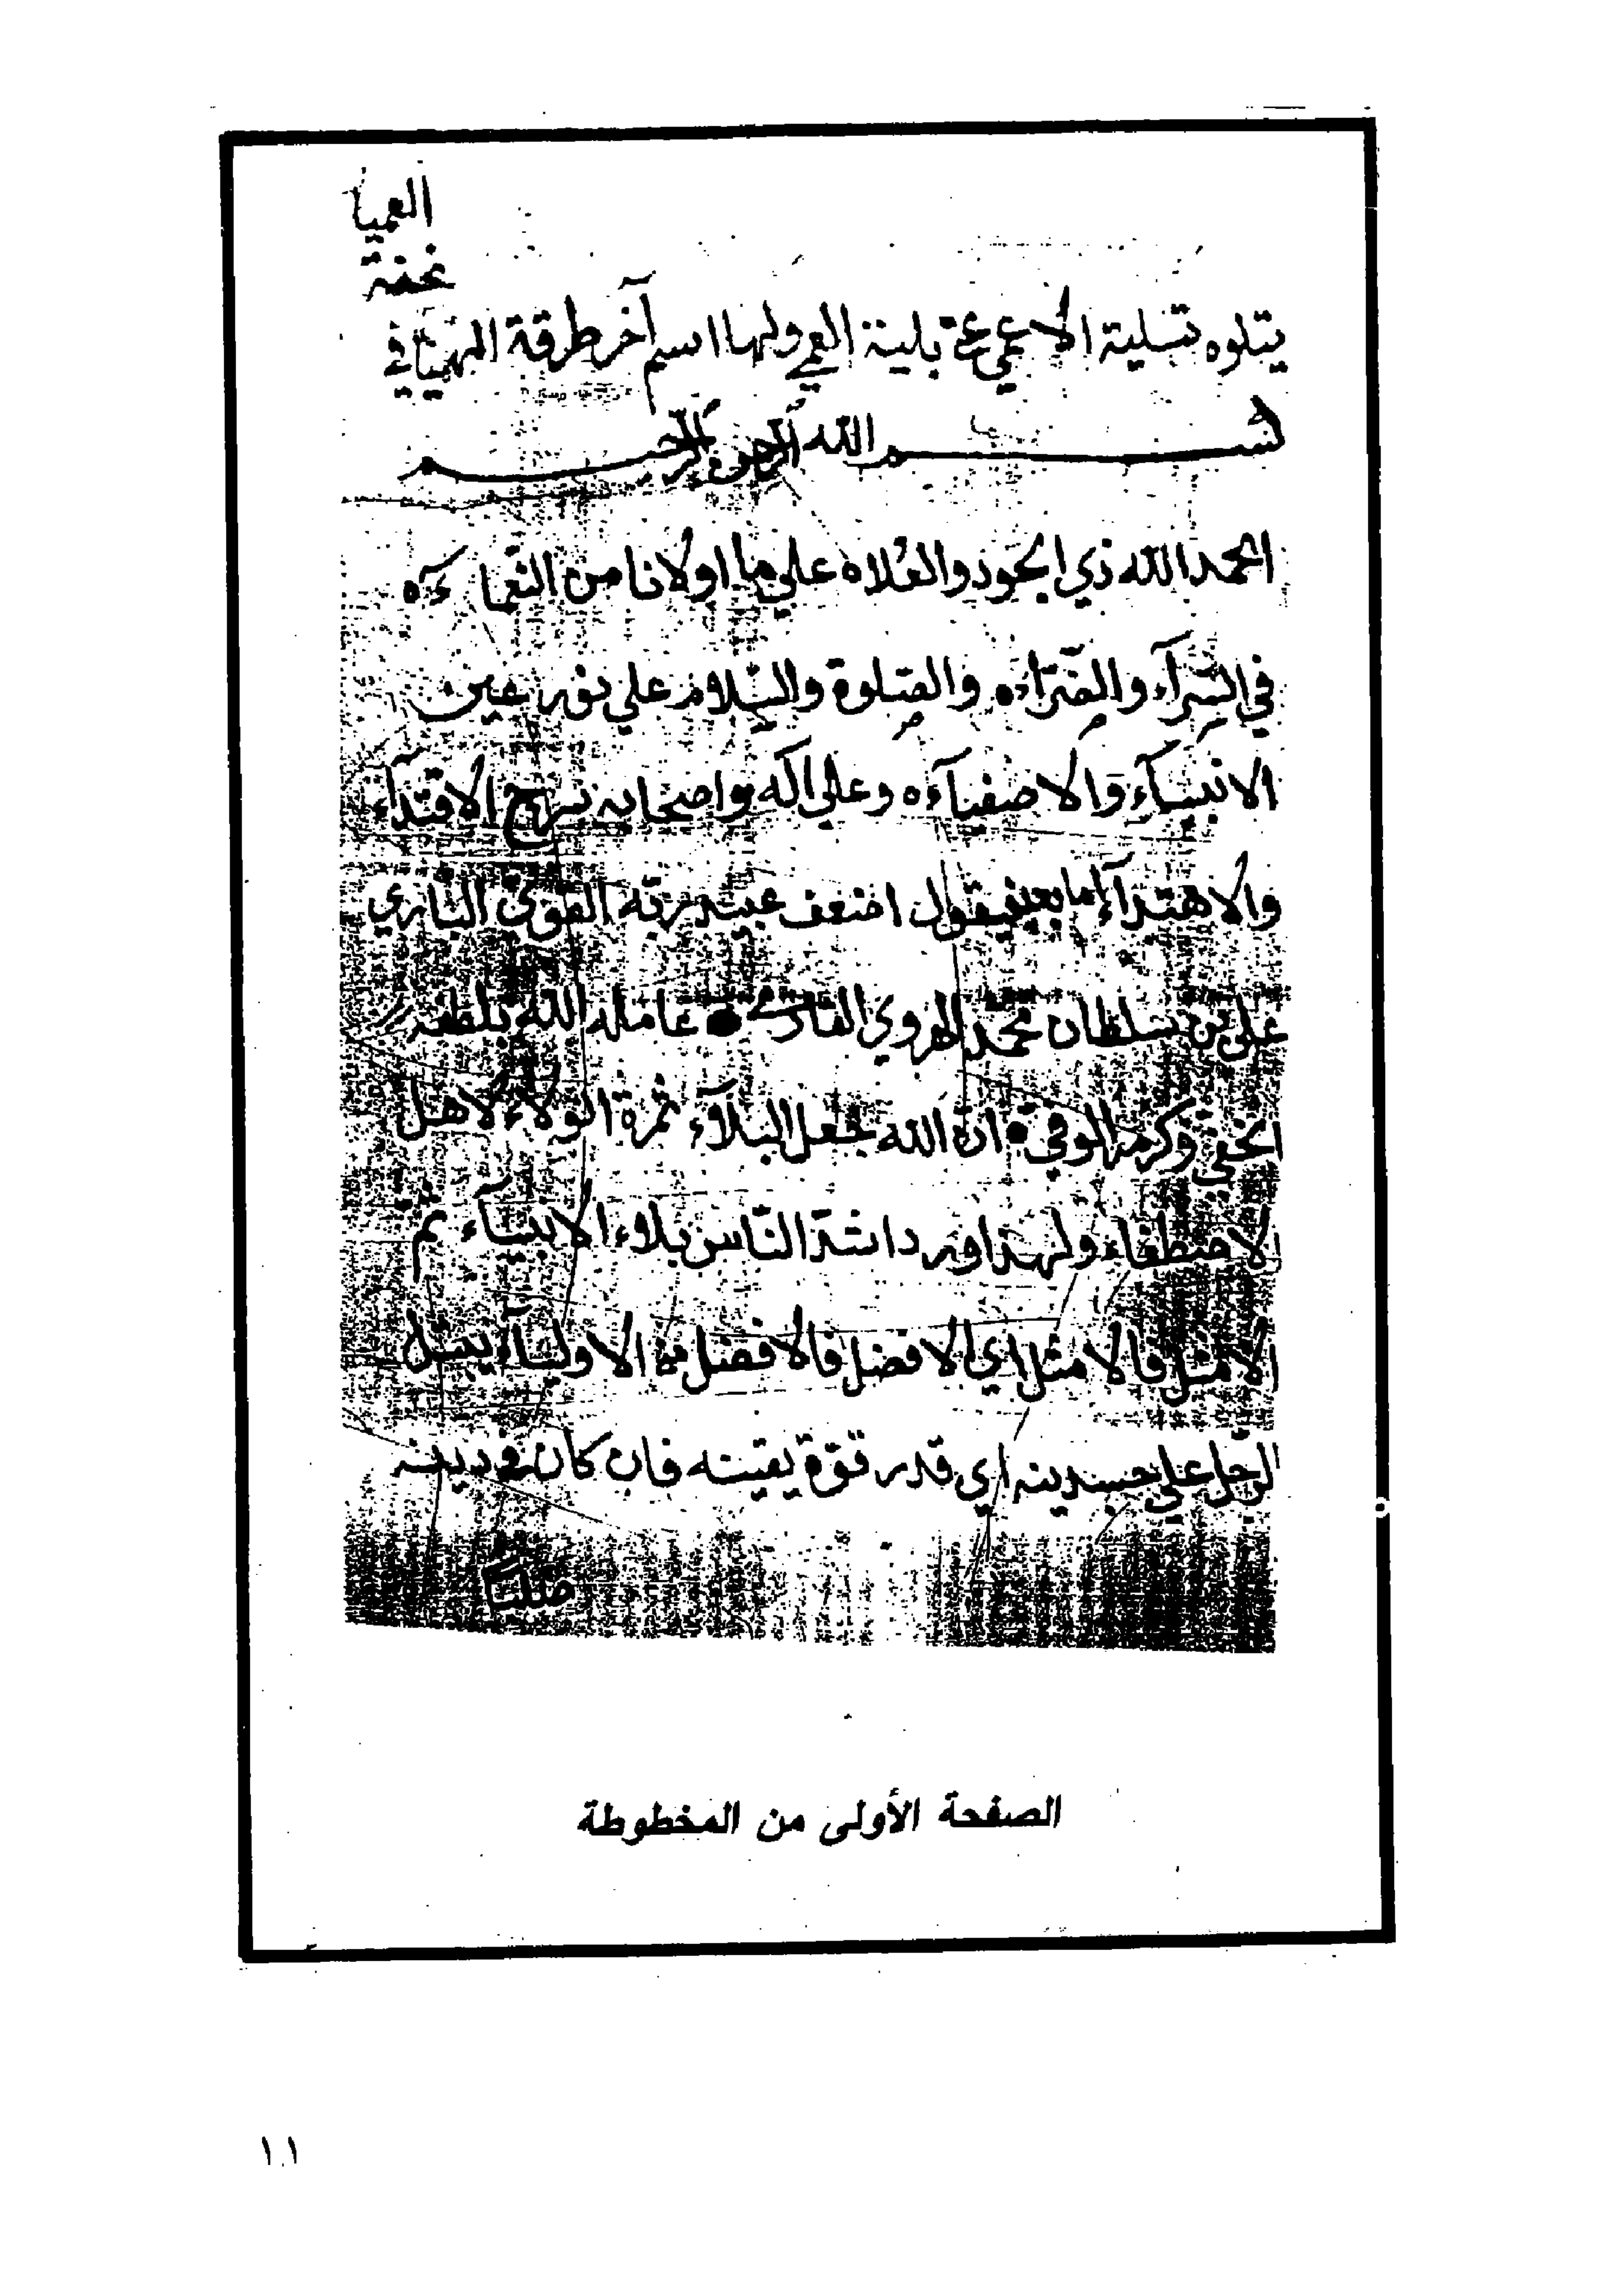 العميا
تحفة
يتلوه تسلية الاعمى عن بلية العمى ولها اسم آخر طرقة الهميان في
بسم الله الرحمن الرحيم
الحمد لله ذي الجود والعُلاه علي ما اولانا من النعماءه
في السرآء والضرّاءه والصلوة والسلام علي نور عين
الانبيآء والاصفيآءه وعلي آله واصحابه نهج الاقتدآء
والاهتدآء اما بعد فيقول اضعف عبيد ربّه القوي الباري
علي بن سلطان محمد الهروي القاري عامله الله بلطفه
الخفي وكرمه الوفي انّ الله جعل البلآء ثمرة الولاء لاهل
الاصطفاء ولهذا ورد اشدّ الناس بلاء الانبيآء ثم
الامثل فالامثل اي الافضل فالافضل من الاوليآء يبتلي
الرجل علي حسب دينه اي قدر قوّة يقينه فان كان في دينه
صلبا
الصفحة الأولى من المخطوطة
١١